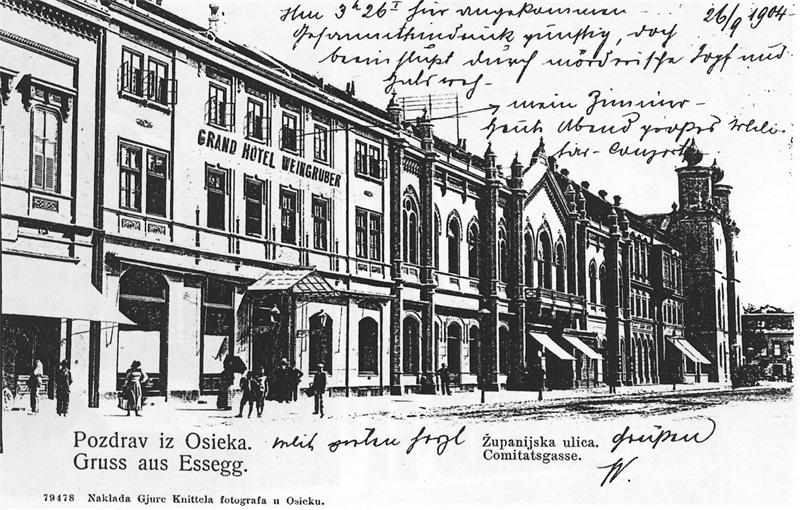 Um 3 h 26 I hier angekommen 26/9 1904
Gesammteindruck günstig, doch
beeinflußt durch mörderische Kopf und
Halsweh-
mein Zimmer-
Heute Abend großes Mili-
tär-Conzert
GRAND HOTEL WEINGRUBER
Pozdrav iz Osieka. mit
Gruss aus Essegg.
Županijska ulica. Grüßen
Comitatsgasse. W.
79478 Naklada Gjure Knittela fotografa u Osieku.